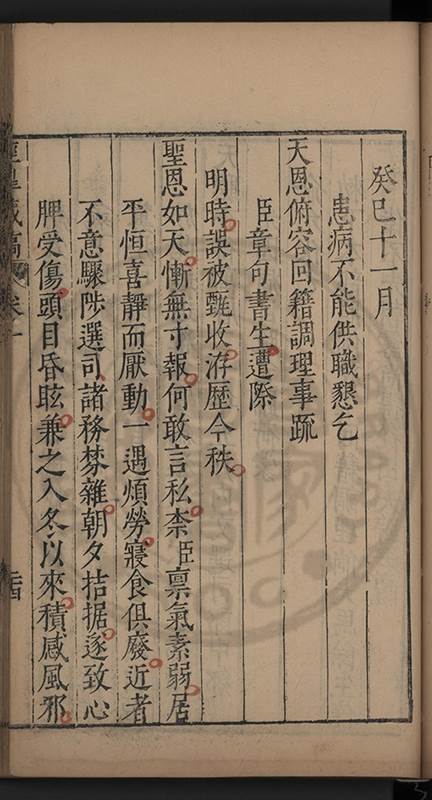 癸巳十一月
患病不能供職懇乞
天恩俯容回籍調理事疏
臣章句書生遭際
明時誤被甄收洊歷今秩
聖恩如天慚無寸報何敢言私柰臣禀氣素弱居
平恒喜靜而厭動一遇煩勞寢食俱廢近者
不意驟陟選司諸務棼雜朝夕拮据遂致心
脾受傷頭目昏眩兼之入冬以來積感風邪
卷一
二十四